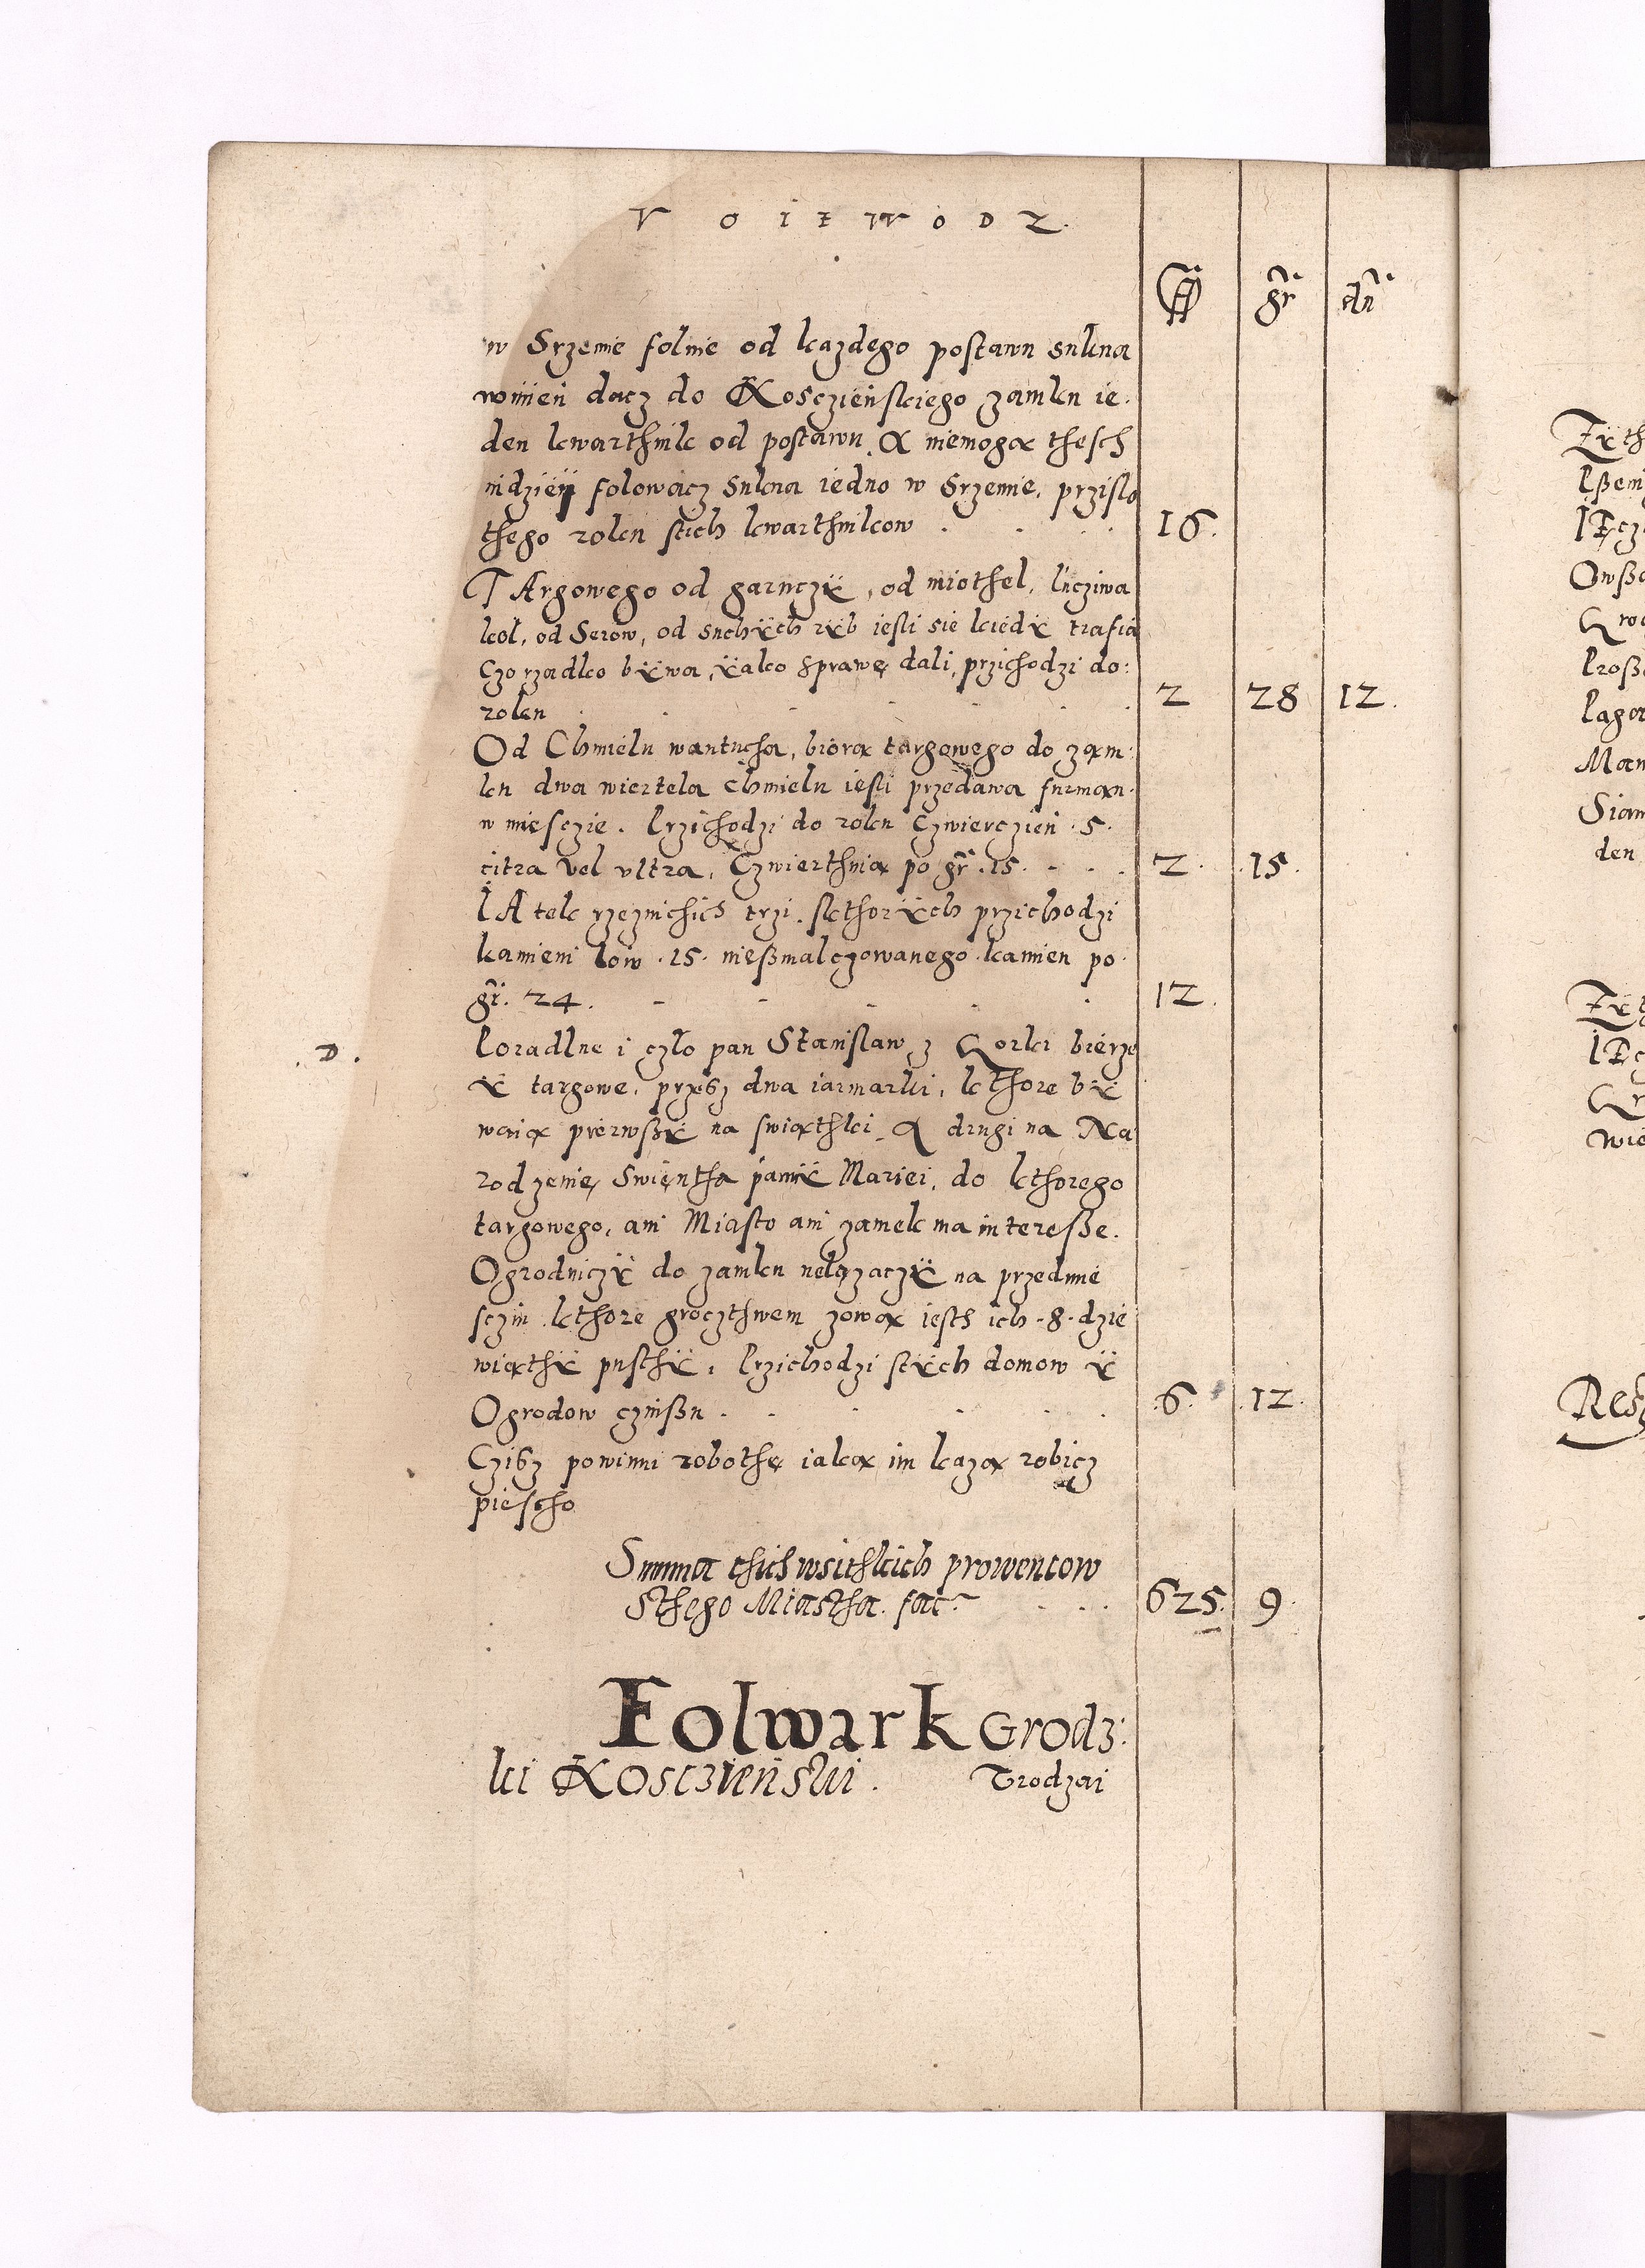 VOIEWODZ.
ff gr dn
w Srzemie folnie od kazdego postawu sukna
winien dacz do Kosczienskiego zamku ie.
den kwarthnik od postawu. A niemogą thesch
nidzieÿ folowacz Sukna iedno w Srzemie, przisło
thego roku stich kwarthnikow . 16.
TArgowego od garnczÿ, od miothel, łucziwa
kol, od Serow, od suchÿch rÿb iesli sie kiedÿ trafia
Czo rzadko bÿwa, ÿako Sprawę dali, przichodzi do:
roku 2 28 12.
Od Chmielu wantucha, biorą targowego do zam:
ku dwa wiertela Chmielu iesli przedawa furman.
w miesczie. Przichodzi do roku Czwierczien .5.
citra vel vltra, Czwierthnia po gr. 15. 2. 15.
IAtek rzeznichich trzi. skthorÿch przichodzi
kamieni łow .15. nießmalczowanego kamien po
gr. 24. 12.
.D.
Poradlne i czło pan Stanislaw z Gorki bierze
ÿ targowe, przesz dwa iarmarki, kthore bÿ
waią pierwßÿ na swiąthki, A drugi na Na
rodzenie, Swiętha panÿ Mariei, do kthorego
targowego, ani Miasto ani zamek ma intereße.
Ogrodniczÿ do zamku nalęzączÿ na przedmie
sczin kthore groczthwem zową iesth ich .8. dzie
wiąthÿ pusthÿ, Przichodzi stÿch domow ÿ
Ogrodow czinßu . 6. 12.
Czisz powinni robothę iaką im kazą robicz
piescho
Summa thich wsithkich prowentow
sthego Miastha. fac 625. 9.
Folwark Grodz:
ki Kosczienski. Vrodzai